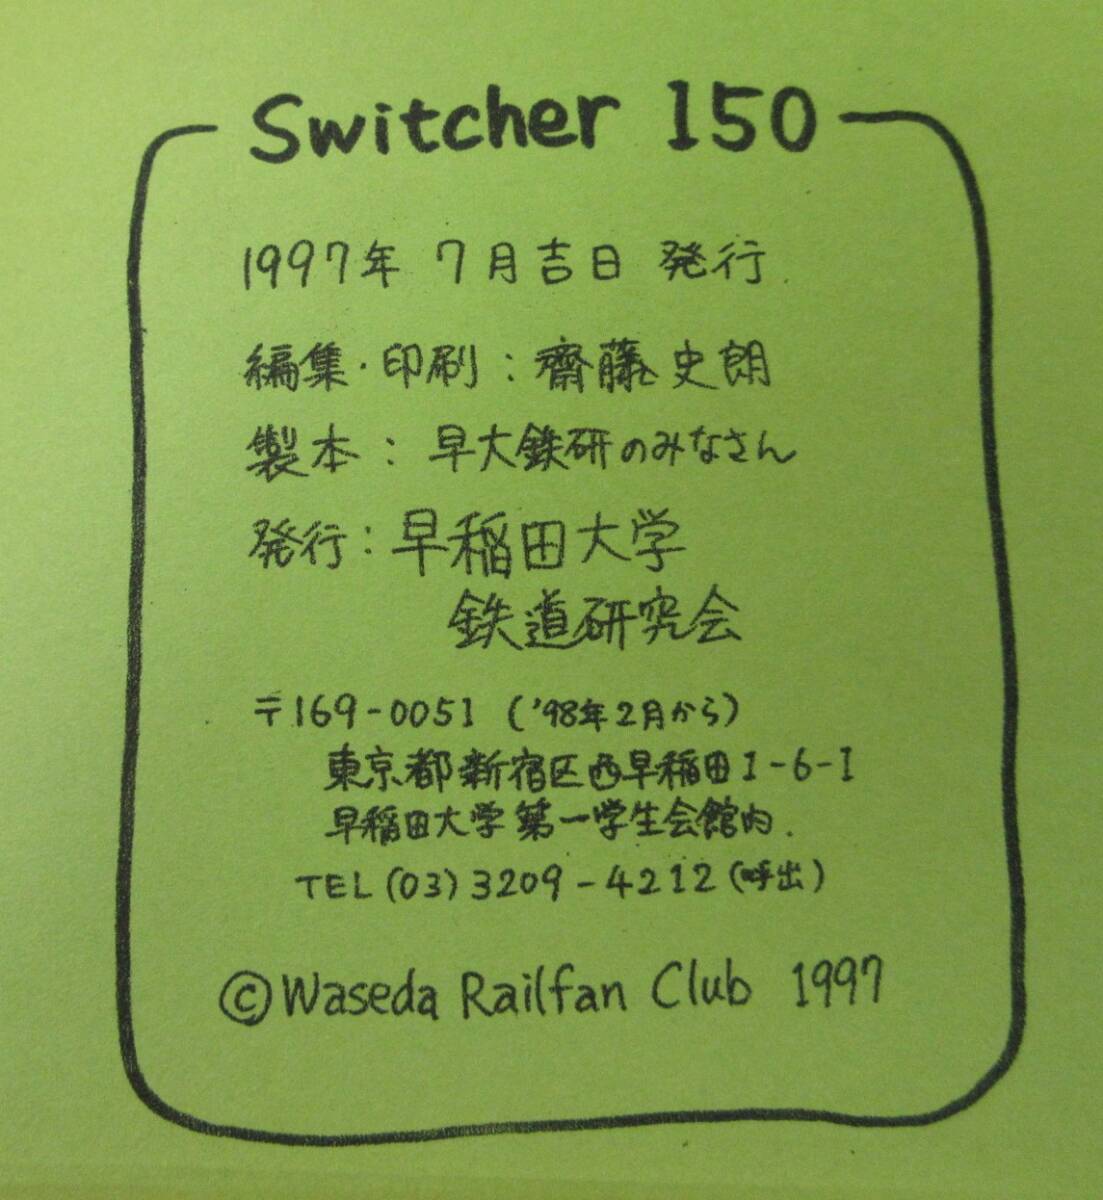 Switcher 150
1997年 7月吉日 発行
編集・印刷：齋藤史朗
製本：早大鉄研のみなさん
発行：早稲田大学
鉄道研究会
〒169-0051 ('98年2月から)
東京都新宿区西早稲田1-6-1
早稲田大学第一学生会館内.
TEL (03) 3209-4212 (呼出)
©Waseda Railfan Club 1997